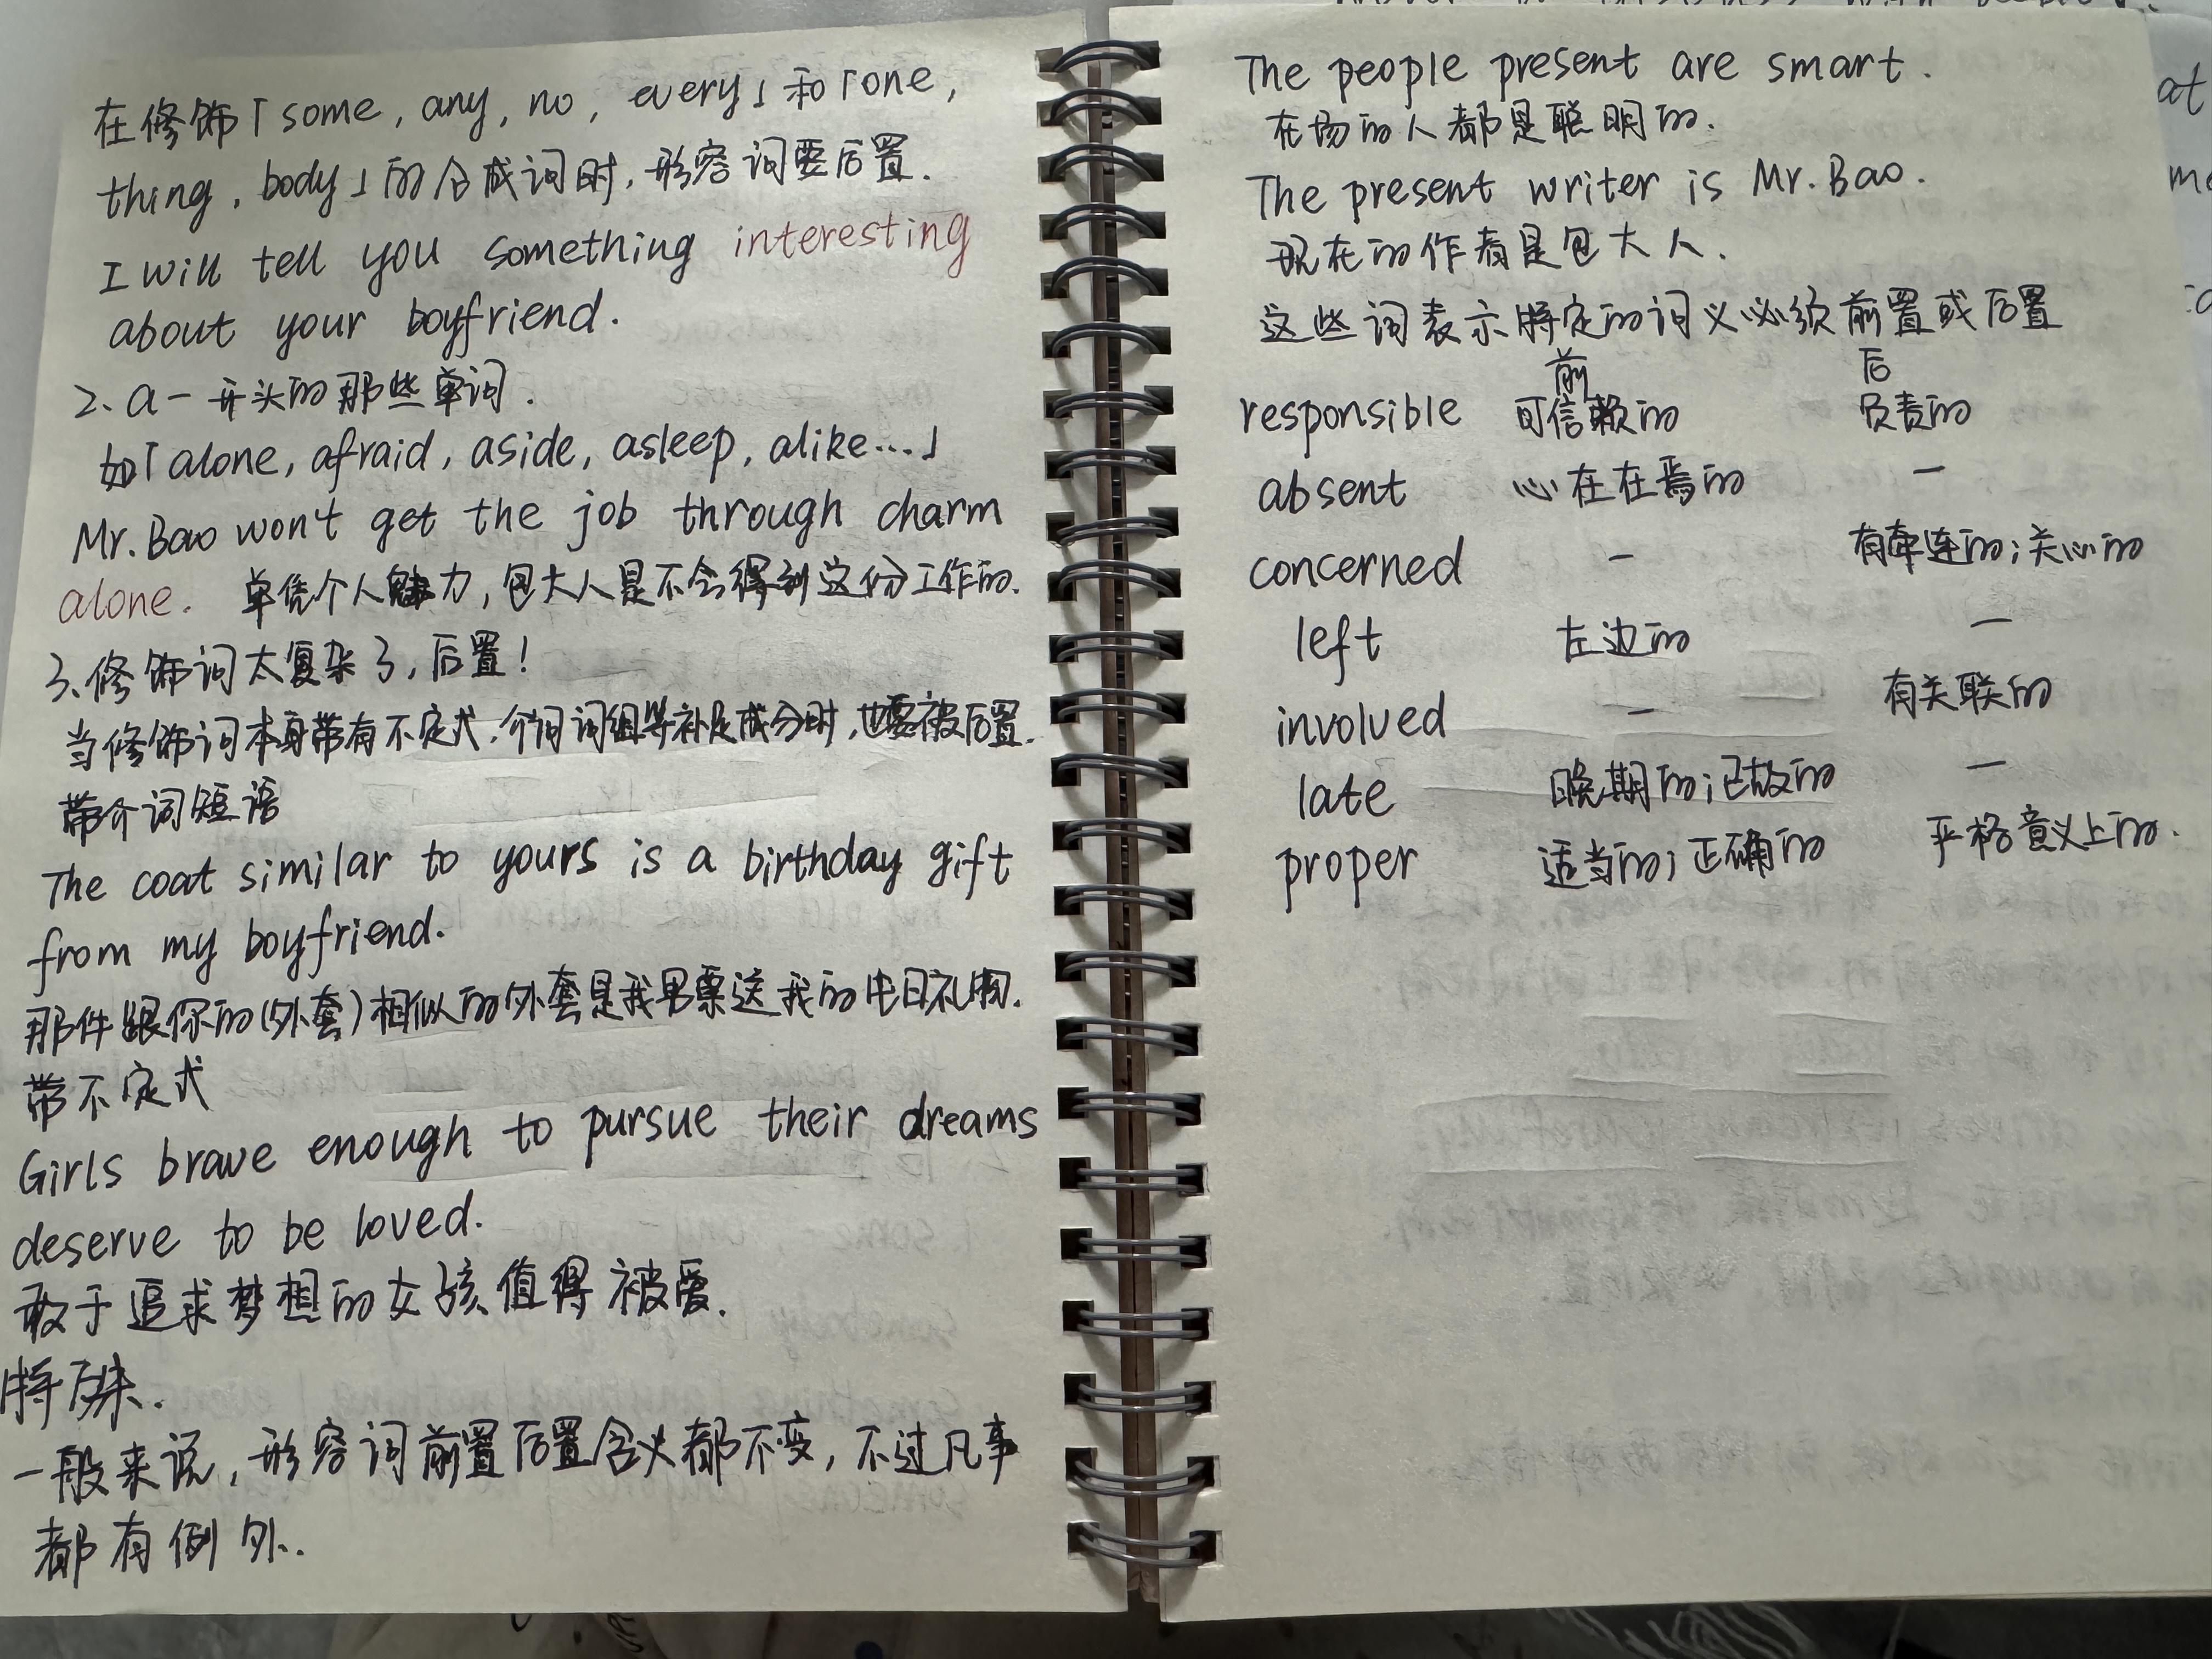 在修饰「some, any, no, every」和「one,
thing, body」的合成词时,形容词要后置.
I will tell you something interesting
about your boyfriend.
2、a-开头的那些单词.
如「alone, afraid, aside, asleep, alike…」
Mr. Bao won't get the job through charm
alone. 单凭个人魅力,包大人是不会得到这份工作的.
3、修饰词太复杂了,后置!
当修饰词本身带有不定式、介词词组等补足成分时,也要被后置.
带介词短语
The coat similar to yours is a birthday gift
from my boyfriend.
那件跟你的(外套)相似的外套是我男票送我的生日礼物.
带不定式
Girls brave enough to pursue their dreams
deserve to be loved.
敢于追求梦想的女孩值得被爱.
特殊.
一般来说,形容词前置后置含义都不变,不过凡事
都有例外.
The people present are smart.
在场的人都是聪明的.
The present writer is Mr. Bao.
现在的作者是包大人.
这些词表示特定的词义必须前置或后置
前 后
responsible 可信赖的 负责的
absent 心在在焉的 —
concerned — 有牵连的;关心的
left 左边的 —
involved — 有关联的
late 晚期的;已故的 —
proper 适当的;正确的 严格意义上的.